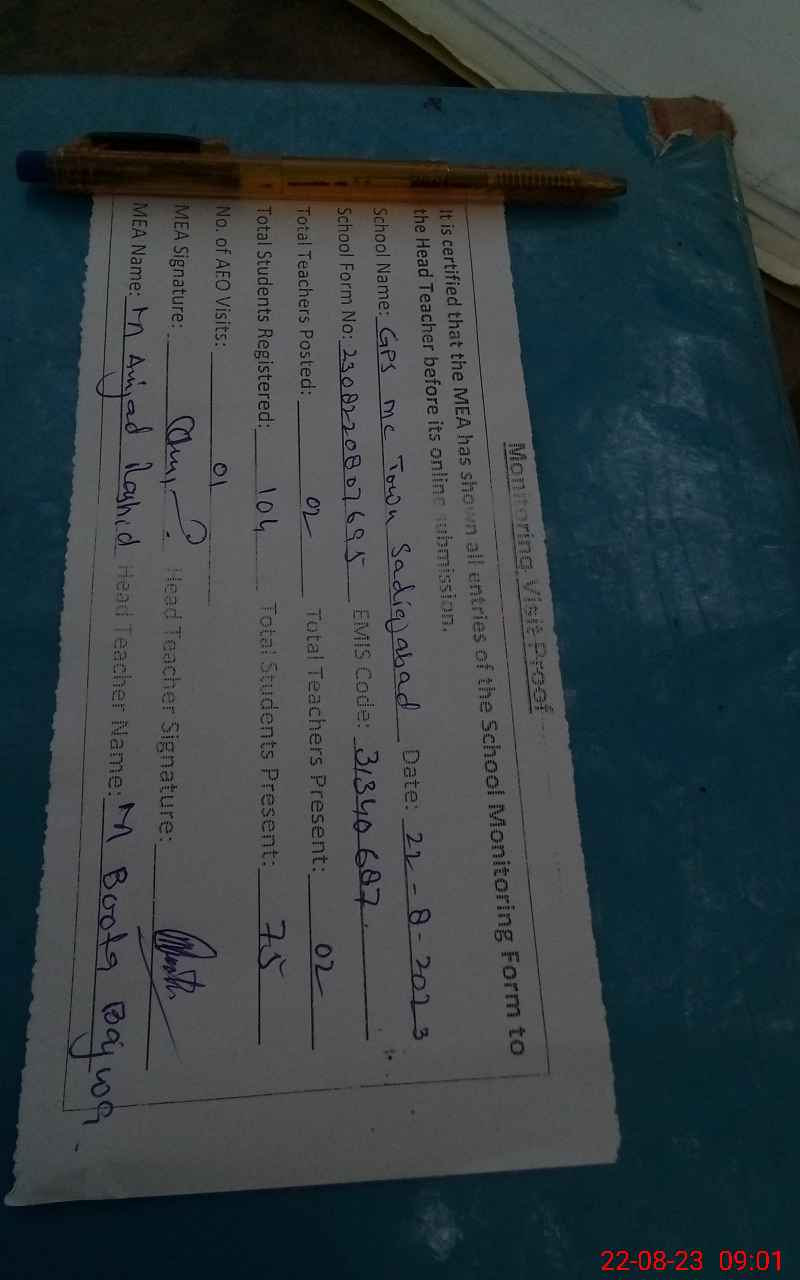 Monitoring Visit Proof
It is certified that the MEA has shown all entries of the School Monitoring Form to
the Head Teacher before its online submission.
School Name: GPS MC Town Sadiqabad Date: 22-8-2023
School Form No: 2308220807695 EMIS Code: 31340687
Total Teachers Posted: 02 Total Teachers Present: 02
Total Students Registered: 104 Total Students Present: 75
No. of AEO Visits: 01
MEA Signature: Head Teacher Signature:
MEA Name: M Amjad Rashid Head Teacher Name: M Boota Bajwa
22-08-23 09:01